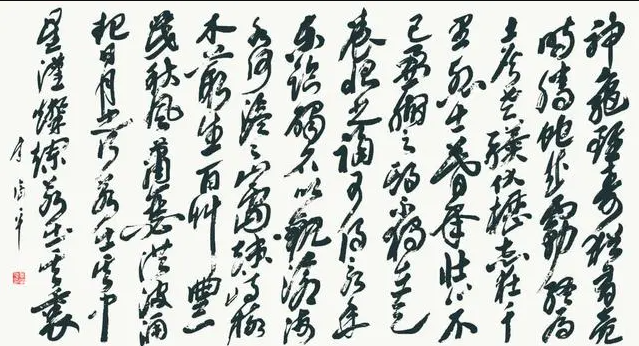 神龜雖壽猶有竟
時騰蛇乘霧終為
土灰老驥伏櫪志在千
里烈士暮年壯心不
已盈縮之期不獨在天
養怡之福可得永年
东临碣石以觀滄海
水何澹々山島竦峙樹
木叢生百艸豐
茂秋風蕭瑟洪波涌
起日月之行若出其中
星漢燦爛若出其裏